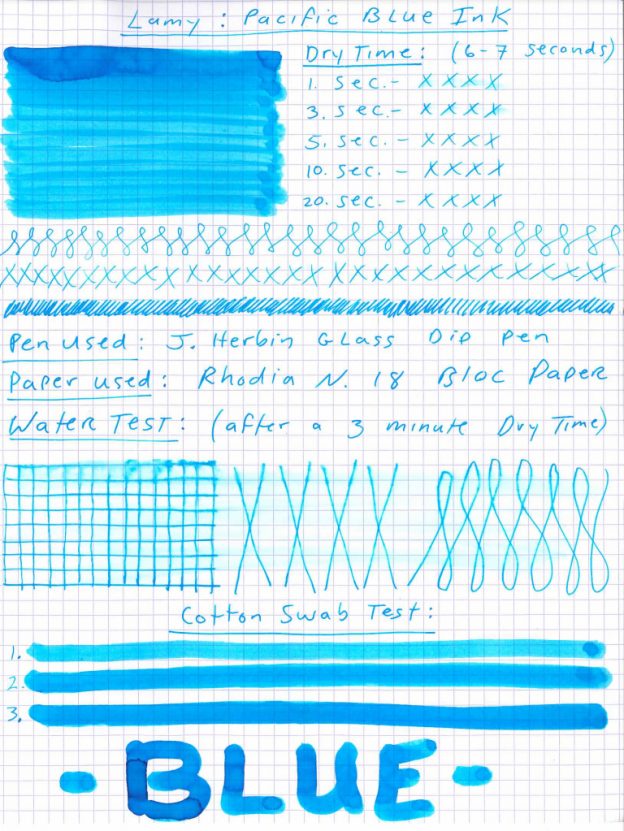 Lamy : Pacific Blue Ink
Dry Time: (6-7 seconds)
1. sec.- X X X X
3. sec. - X X X X
5. sec. - X X X X
10. sec. - X X X X
20. sec. - X X X X
XXXXXXXXXXXXXXXXXXXXXXXXXXXXX
Pen Used: J. Herbin Glass Dip Pen
Paper used: Rhodia N. 18 Bloc Paper
Water Test: (after a 3 minute Dry Time)
Cotton Swab Test:
1.
2.
3.
- BLUE -